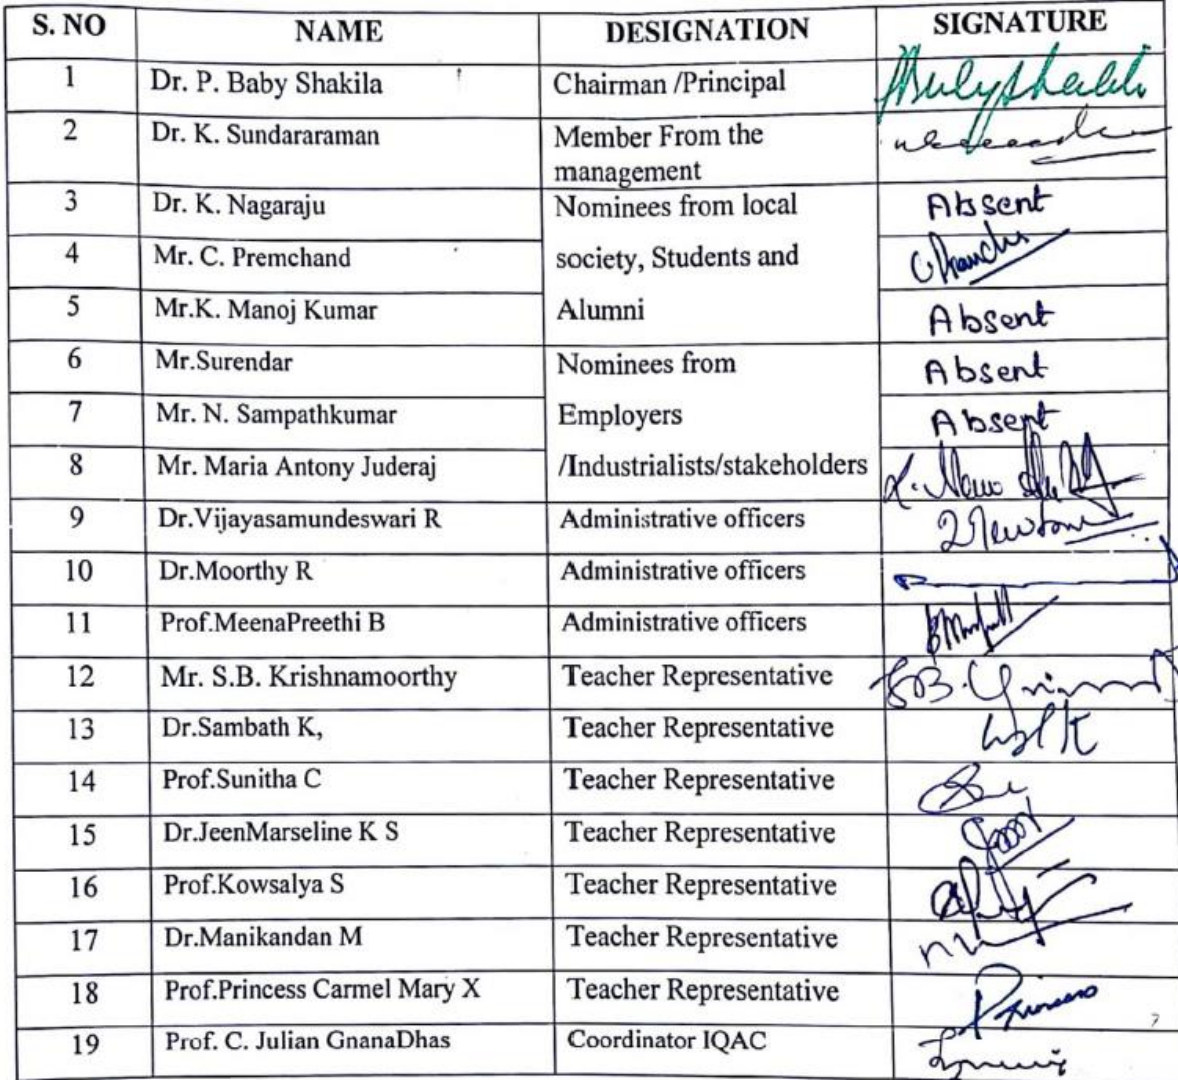 S. NO NAME DESIGNATION SIGNATURE
1 Dr. P. Baby Shakila Chairman /Principal
2 Dr. K. Sundararaman Member From the
management
3 Dr. K. Nagaraju Nominees from local Absent
4 Mr. C. Premchand society, Students and
5 Mr.K. Manoj Kumar Alumni Absent
6 Mr.Surendar Nominees from Absent
7 Mr. N. Sampathkumar Employers Absent
8 Mr. Maria Antony Juderaj /Industrialists/stakeholders
9 Dr.Vijayasamundeswari R Administrative officers
10 Dr.Moorthy R Administrative officers
11 Prof.MeenaPreethi B Administrative officers
12 Mr. S.B. Krishnamoorthy Teacher Representative
13 Dr.Sambath K, Teacher Representative
14 Prof.Sunitha C Teacher Representative
15 Dr.JeenMarseline K S Teacher Representative
16 Prof.Kowsalya S Teacher Representative
17 Dr.Manikandan M Teacher Representative
18 Prof.Princess Carmel Mary X Teacher Representative
19 Prof. C. Julian GnanaDhas Coordinator IQAC